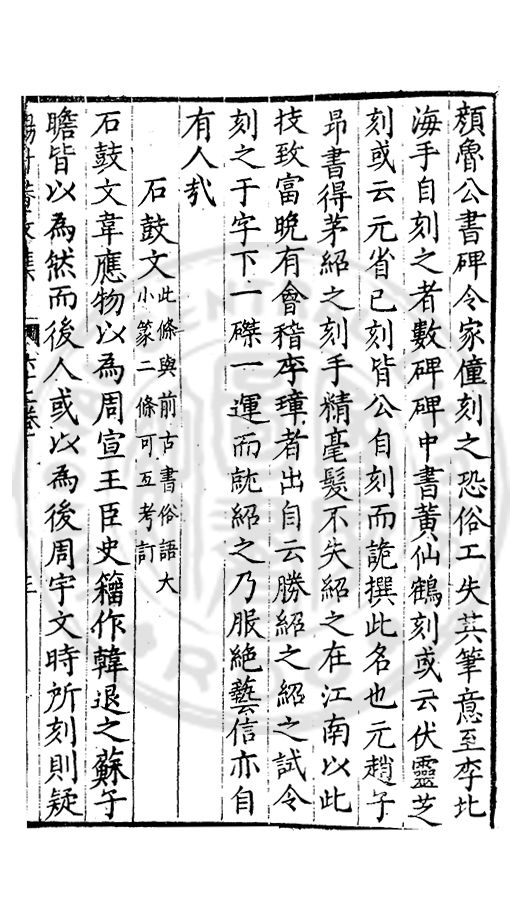 顏魯公書碑令家僮刻之恐俗工失其筆意至李北
海手自刻之者數碑碑中書黃仙鶴刻或云伏靈芝
刻或云元省已刻皆公自刻而詭撰此名也元趙子
昻書得茅紹之刻手精毫髮不失紹之在江南以此
技致富晚有會稽李璋者出自云勝紹之紹之試令
刻之于字下一磔一運而就紹之乃服絶藝信亦自
有人㢤
石鼓文此條與前古書俗語大
小篆二條可互考訂
石鼓文韋應物以為周宣王臣史籀作韓退之蘇子
瞻皆以為然而後人或以為後周宇文時所刻則疑